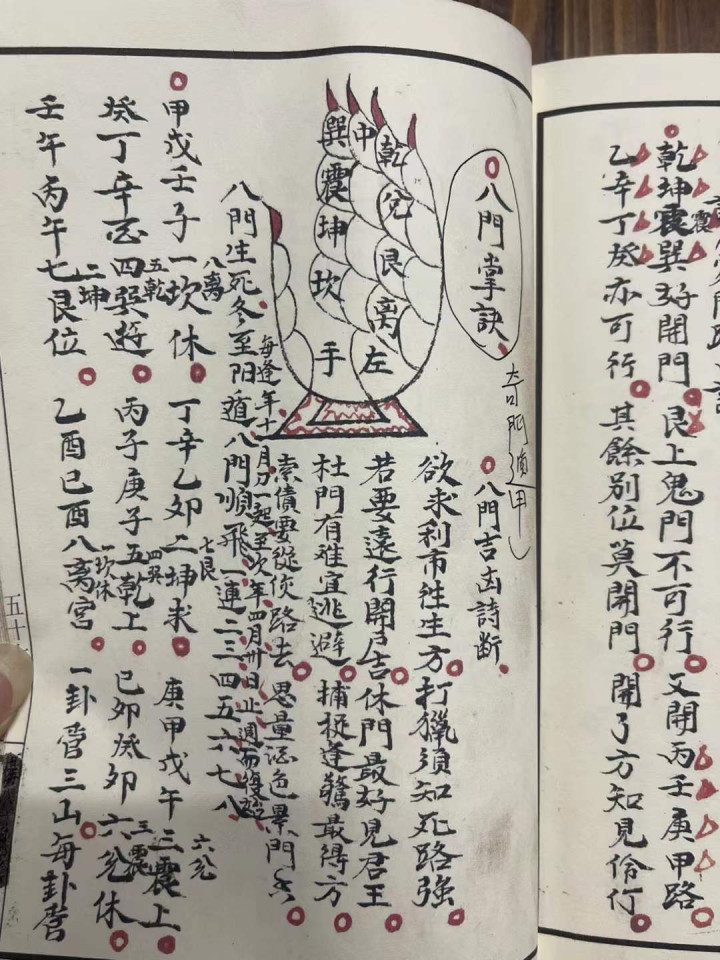 乾坤震巽好開門 艮上鬼門不可行 又開丙壬庚甲路
震
乙辛丁癸亦可行 其餘別位莫開門 開了方知見伶仃
八門掌訣
奇門遁甲
巽 中 乾
震 兌
坤 艮
坎 离
左
手
八門吉凶詩断
欲求利市往生方 打獵須知死路強
若要遠行開门吉 休門最好見君王
杜門有难宜逃避 捕捉逢驚最得方
索債要從傷路去 思量酒色景門
每逢年十一月 一起至次年四月卅日止週而復始
八門生死冬至阳遁八門順飛一連二三四五六七八
甲戊壬子一坎休 丁辛乙卯二坤求 庚甲戊午三震上
八离 七艮 六兌
癸丁辛酉四巽遊 丙子庚子五乾上 己卯癸卯六兌休
五乾 四巽 三震
壬午丙午七艮位 乙酉己酉八离宮 一卦管三山每卦管
二坤 一坎休
五十